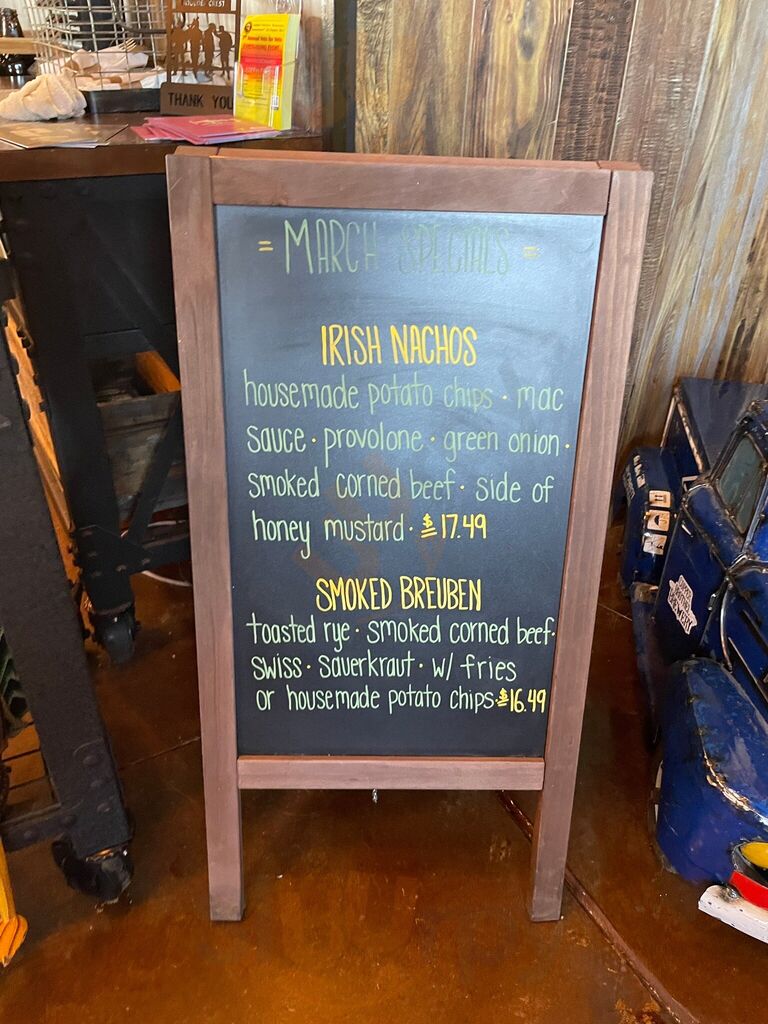 THANK YOU
= MARCH SPECIALS =
IRISH NACHOS
housemade potato chips · mac
sauce · provolone · green onion ·
smoked corned beef · side of
honey mustard · $17.49
SMOKED BREUBEN
toasted rye · smoked corned beef ·
swiss · sauerkraut · w/ fries
or housemade potato chips · $16.49